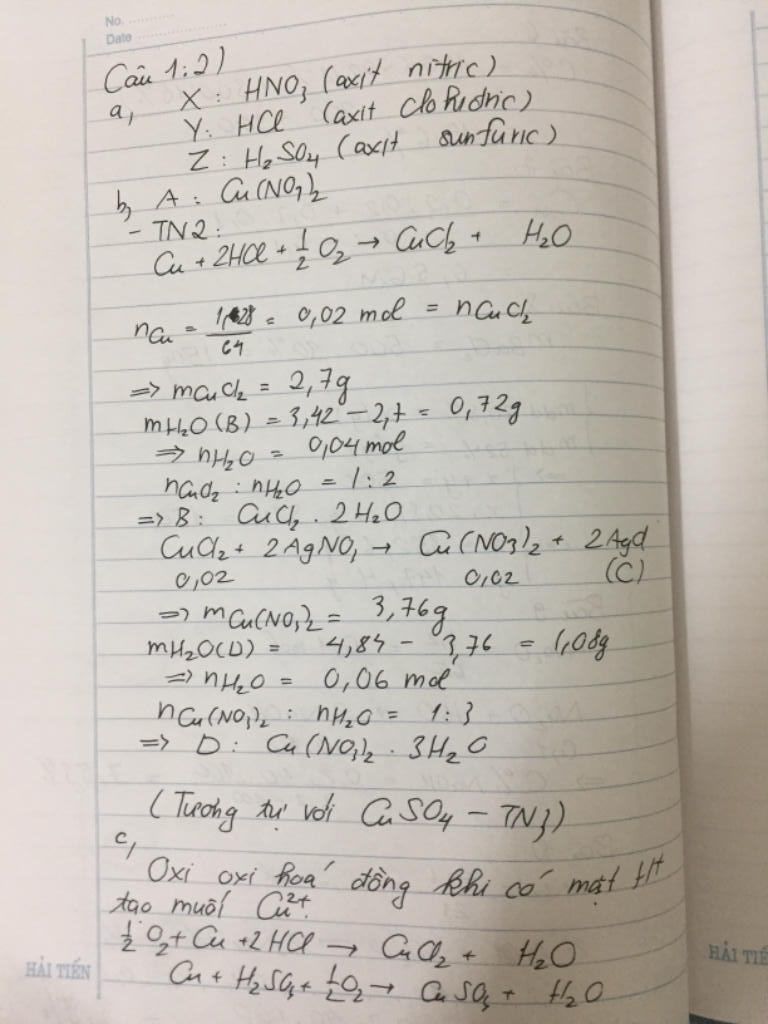 No.
Date
Câu 1:2)
a, X: HNO3 (axit nitric)
Y: HCl (axit clohidric)
Z: H2SO4 (axit sunfuric)
b, A: Cu(NO3)2
- TN2:
Cu + 2HCl + 1/2 O2 → CuCl2 + H2O
nCu = 1,28/64 = 0,02 mol = nCuCl2
=> mCuCl2 = 2,7g
mH2O(B) = 3,42 - 2,7 = 0,72g
=> nH2O = 0,04 mol
nCuCl2 : nH2O = 1:2
=> B: CuCl2 . 2H2O
CuCl2 + 2AgNO3 → Cu(NO3)2 + 2AgCl
0,02 0,02 (C)
=> mCu(NO3)2 = 3,76g
mH2O(D) = 4,84 - 3,76 = 1,08g
=> nH2O = 0,06 mol
nCu(NO3)2 : nH2O = 1:3
=> D: Cu(NO3)2 . 3H2O
(Tương tự với CuSO4 - TN3)
c,
Oxi oxi hoá đồng khi có mặt H+
tạo muối Cu2+.
1/2 O2 + Cu + 2HCl → CuCl2 + H2O
Cu + H2SO4 + 1/2 O2 → CuSO4 + H2O
HẢI TIẾN
HẢI TIẾ